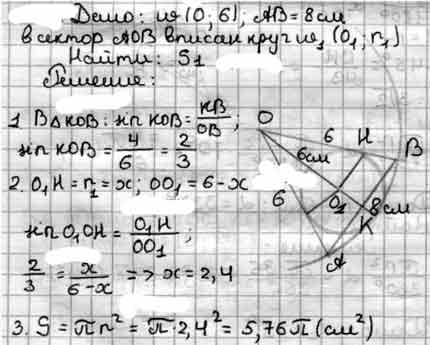 Дано: ω(O; 6); AB = 8 см
в сектор AOB вписан круг ω₁ (O₁; r₁)
Найти: S₁
Решение:
1. В △KOB: sin KOB = KB/OB;
sin KOB = 4/6 = 2/3
2. O₁H = r₁ = x; OO₁ = 6 - x
sin O₁OH = O₁H/OO₁;
2/3 = x/(6-x) => x = 2,4
3. S = πr² = π·2,4² = 5,76π (см²)
O
6
H
B
6 см
6
O₁
8 см
K
A